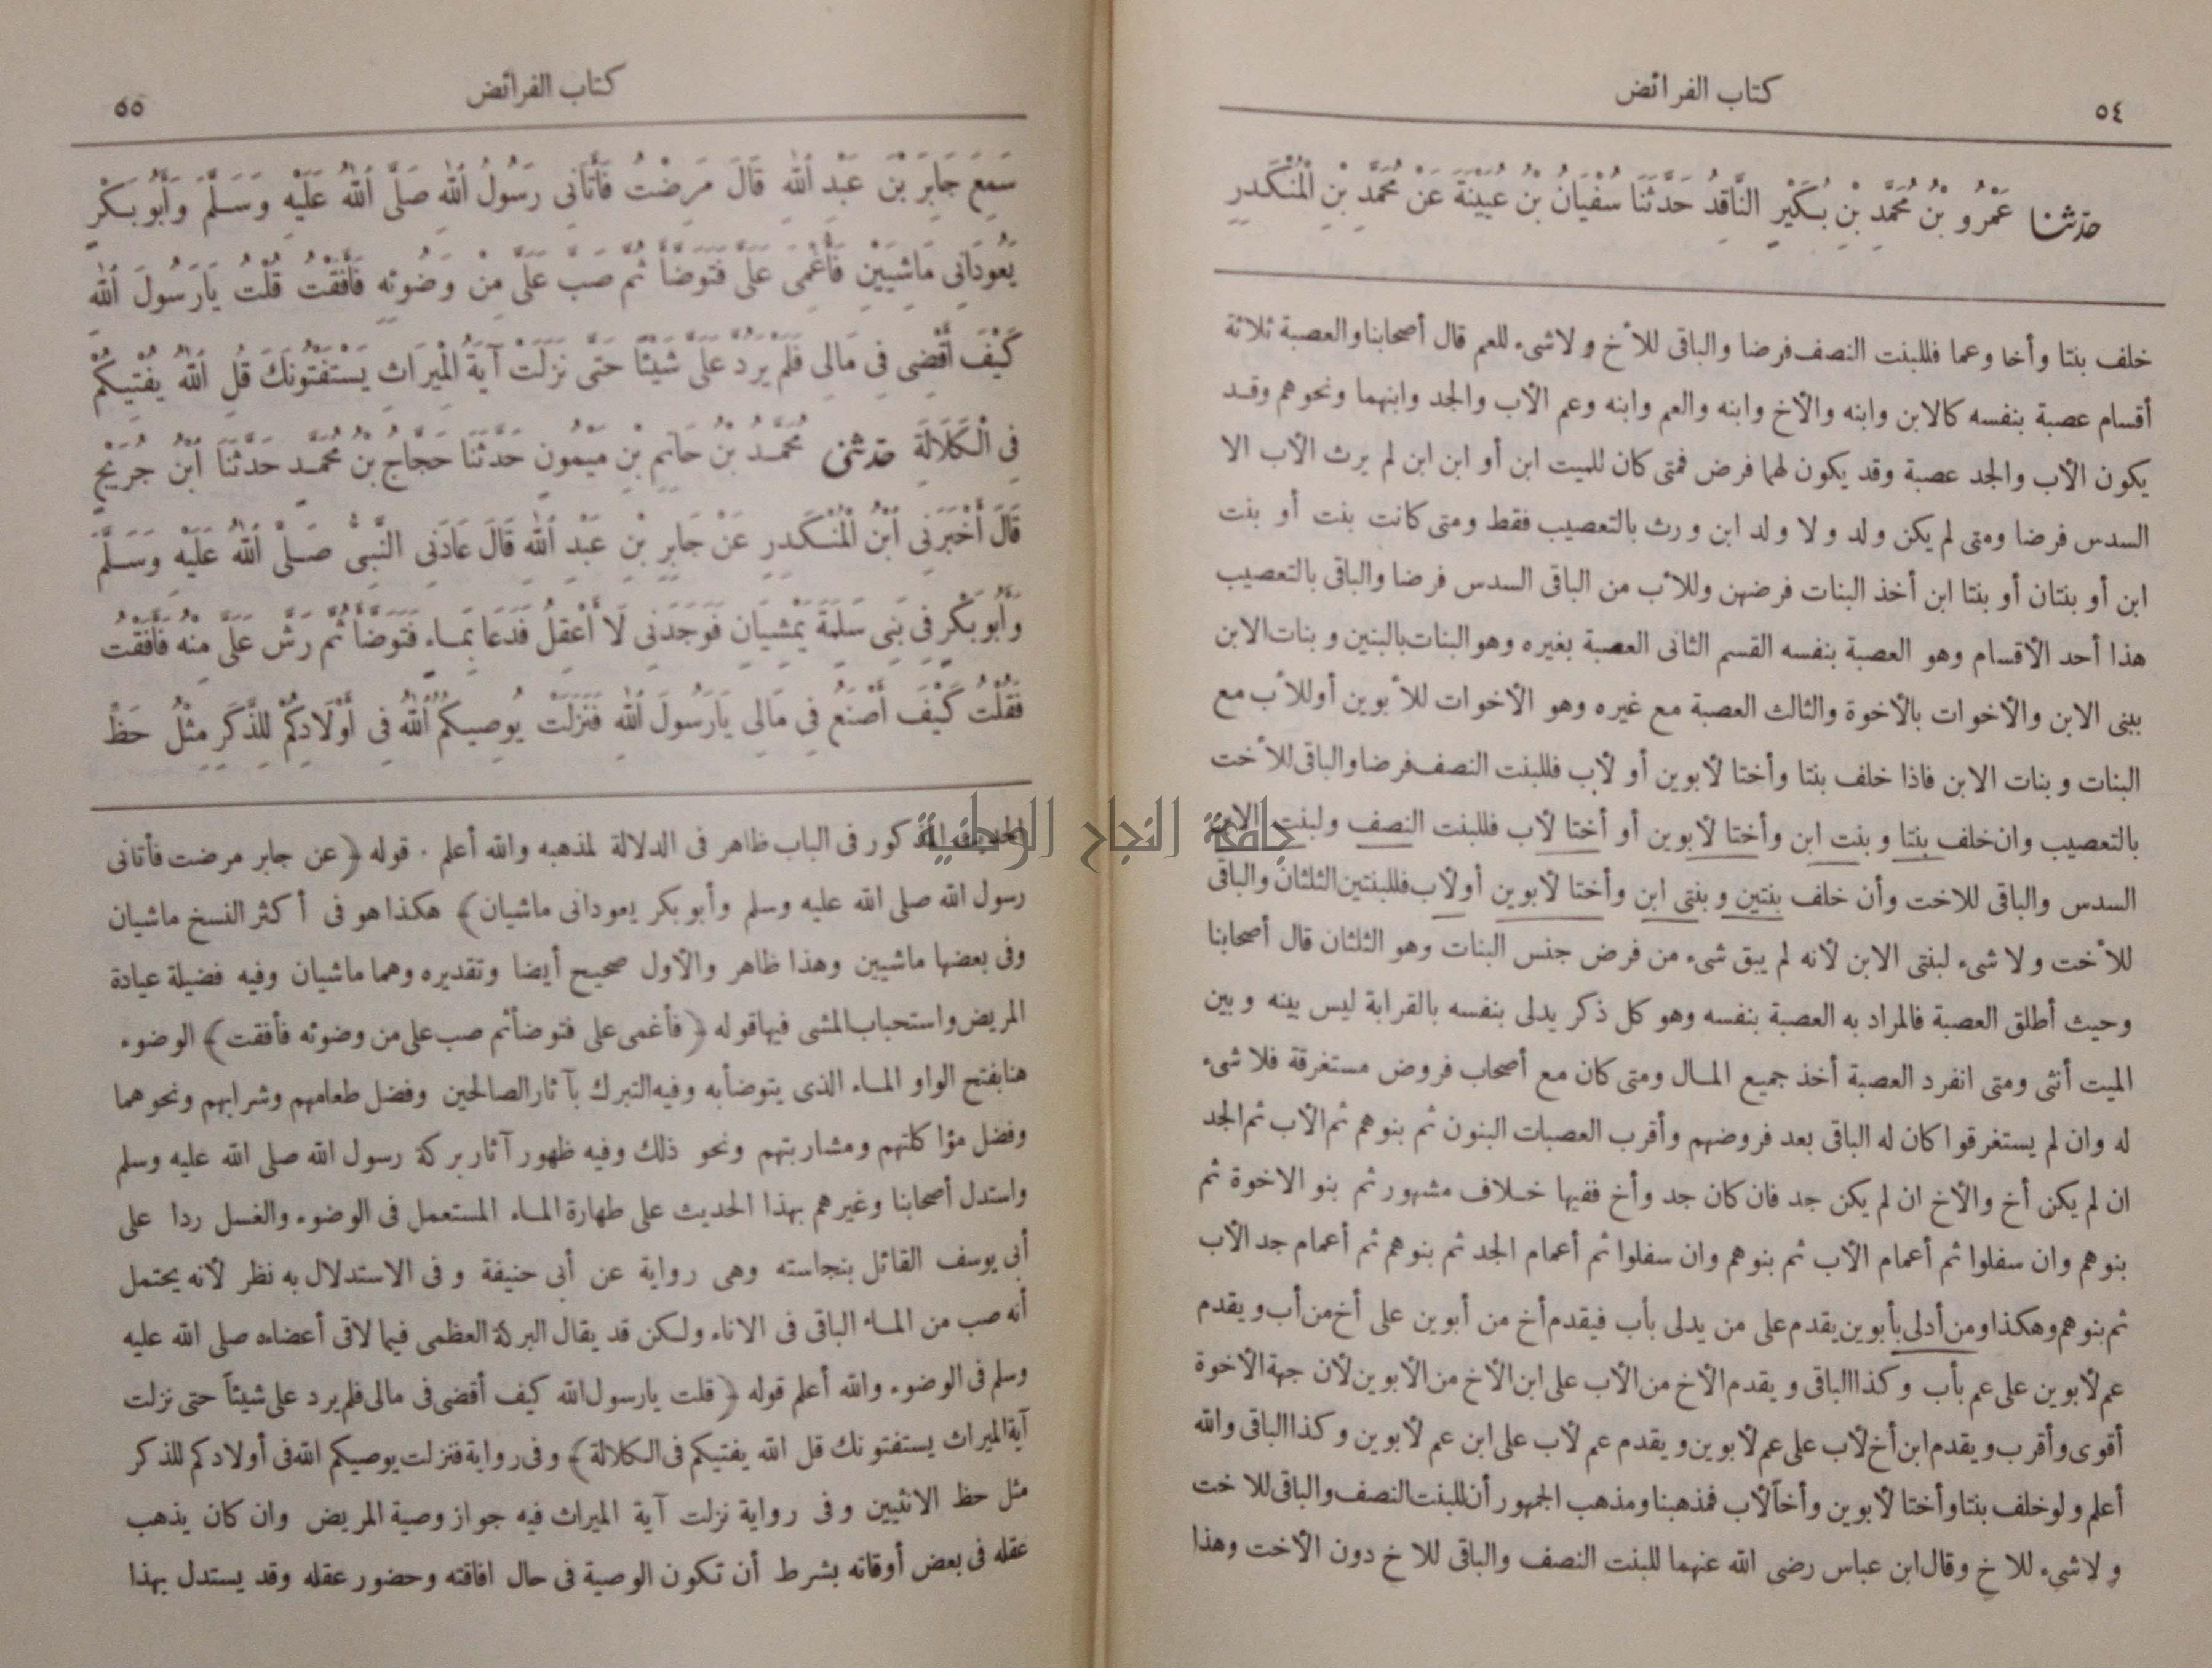 كتاب الفرائض
٥٤
حدثنا عَمْرُو بْنُ مُحَمَّدِ بْنِ بُكَيْرٍ النَّاقِدُ حَدَّثَنَا سُفْيَانُ بْنُ عُيَيْنَةَ عَنْ مُحَمَّدِ بْنِ الْمُنْكَدِرِ
خلف بنتا وأخا وعما فللبنت النصف فرضا والباقى للأخ ولاشىء للعم قال أصحابنا والعصبة ثلاثة
أقسام عصبة بنفسه كالابن وابنه والأخ وابنه والعم وابنه وعم الأب والجد وابنهما ونحوهم وقد
يكون الأب والجد عصبة وقد يكون لهما فرض فمتى كان للميت ابن أو ابن ابن لم يرث الأب الا
السدس فرضا ومتى لم يكن ولد ولا ولد ابن ورث بالتعصيب فقط ومتى كانت بنت أو بنت
ابن أو بنتان أو بنتا ابن أخذ البنات فرضهن وللأب من الباقى السدس فرضا والباقى بالتعصيب
هذا أحد الأقسام وهو العصبة بنفسه القسم الثانى العصبة بغيره وهو البنات بالبنين وبنات الابن
ببنى الابن والأخوات بالأخوة والثالث العصبة مع غيره وهو الأخوات للأبوين أو للأب مع
البنات وبنات الابن فاذا خلف بنتا وأختا لأبوين أو لأب فللبنت النصف فرضا والباقى للأخت
بالتعصيب وان خلف بنتا وبنت ابن وأختا لأبوين أو أختا لأب فللبنت النصف ولبنت الابن
السدس والباقى للاخت وأن خلف بنتين وبنتى ابن وأختا لأبوين أو لأب فللبنتين الثلثان والباقى
للأخت ولا شىء لبنتى الابن لأنه لم يبق شىء من فرض جنس البنات وهو الثلثان قال أصحابنا
وحيث أطلق العصبة فالمراد به العصبة بنفسه وهو كل ذكر يدلى بنفسه بالقرابة ليس بينه وبين
الميت أنثى ومتى انفرد العصبة أخذ جميع المال ومتى كان مع أصحاب فروض مستغرقة فلا شىء
له وان لم يستغرقوا كان له الباقى بعد فروضهم وأقرب العصبات البنون ثم بنوهم ثم الأب ثم الجد
ان لم يكن أخ والأخ ان لم يكن جد فان كان جد وأخ ففيها خلاف مشهور ثم بنو الاخوة ثم
بنوهم وان سفلوا ثم أعمام الأب ثم بنوهم وان سفلوا ثم أعمام الجد ثم بنوهم ثم أعمام جد الأب
ثم بنوهم وهكذا ومن أدلى بأبوين يقدم على من يدلى بأب فيقدم أخ من أبوين على أخ من أب ويقدم
عم لأبوين على عم بأب وكذا الباقى ويقدم الأخ من الأب على ابن الأخ من الأبوين لأن جهة الأخوة
أقوى وأقرب ويقدم ابن أخ لأب على عم لأبوين ويقدم عم لأب على ابن عم لأبوين وكذا الباقى والله
أعلم ولو خلف بنتا وأختا لأبوين وأخاً لأب فمذهبنا ومذهب الجمهور أن للبنت النصف والباقى للاخت
ولاشىء للاخ وقال ابن عباس رضى الله عنهما للبنت النصف والباقى للاخ دون الأخت وهذا
كتاب الفرائض
٥٥
سَمِعَ جَابِرَ بْنَ عَبْدِ اللهِ قَالَ مَرِضْتُ فَأَتَانِى رَسُولُ اللهِ صَلَّى اللهُ عَلَيْهِ وَسَلَّمَ وَأَبُو بَكْرٍ
يَعُودَانِى مَاشِيَيْنِ فَأُغْمِىَ عَلَىَّ فَتَوَضَّأَ ثُمَّ صَبَّ عَلَىَّ مِنْ وَضُوئِهِ فَأَفَقْتُ قُلْتُ يَارَسُولَ اللهِ
كَيْفَ أَقْضِى فِى مَالِى فَلَمْ يَرُدَّ عَلَىَّ شَيْئًا حَتَّى نَزَلَتْ آيَةُ الْمِيرَاثِ يَسْتَفْتُونَكَ قُلِ اللهُ يُفْتِيكُمْ
فِى الْكَلَالَةِ حدثنى مُحَمَّدُ بْنُ حَاتِمِ بْنِ مَيْمُونٍ حَدَّثَنَا حَجَّاجُ بْنُ مُحَمَّدٍ حَدَّثَنَا ابْنُ جُرَيْجٍ
قَالَ أَخْبَرَنِى ابْنُ الْمُنْكَدِرِ عَنْ جَابِرِ بْنِ عَبْدِ اللهِ قَالَ عَادَنِى النَّبِىُّ صَلَّى اللهُ عَلَيْهِ وَسَلَّمَ
وَأَبُو بَكْرٍ فِى بَنِى سَلَمَةَ يَمْشِيَانِ فَوَجَدَنِى لَا أَعْقِلُ فَدَعَا بِمَاءٍ فَتَوَضَّأَ ثُمَّ رَشَّ عَلَىَّ مِنْهُ فَأَفَقْتُ
فَقُلْتُ كَيْفَ أَصْنَعُ فِى مَالِى يَارَسُولَ اللهِ فَنَزَلَتْ يُوصِيكُمُ اللهُ فِى أَوْلَادِكُمْ لِلذَّكَرِ مِثْلُ حَظِّ
الحديث المذكور فى الباب ظاهر فى الدلالة لمذهبه والله أعلم . قوله ﴿عن جابر مرضت فأتانى
رسول الله صلى الله عليه وسلم وأبو بكر يعودانى ماشيان﴾ هكذا هو فى أكثر النسخ ماشيان
وفى بعضها ماشيين وهذا ظاهر والأول صحيح أيضا وتقديره وهما ماشيان وفيه فضيلة عيادة
المريض واستحباب المشى فيها قوله ﴿فأغمى على فتوضأ ثم صب على من وضوئه فأفقت﴾ الوضوء
هنا بفتح الواو الماء الذى يتوضأ به وفيه التبرك بآثار الصالحين وفضل طعامهم وشرابهم ونحوهما
وفضل مؤاكلتهم ومشاربتهم ونحو ذلك وفيه ظهور آثار بركة رسول الله صلى الله عليه وسلم
واستدل أصحابنا وغيرهم بهذا الحديث على طهارة الماء المستعمل فى الوضوء والغسل ردا على
أبى يوسف القائل بنجاسته وهى رواية عن أبى حنيفة وفى الاستدلال به نظر لأنه يحتمل
أنه صب من الماء الباقى فى الاناء ولكن قد يقال البركة العظمى فيما لاقى أعضاءه صلى الله عليه
وسلم فى الوضوء والله أعلم قوله ﴿قلت يارسول الله كيف أقضى فى مالى فلم يرد على شيئاً حتى نزلت
آية الميراث يستفتونك قل الله يفتيكم فى الكلالة﴾ وفى رواية فنزلت يوصيكم الله فى أولادكم للذكر
مثل حظ الانثيين وفى رواية نزلت آية الميراث فيه جواز وصية المريض وان كان يذهب
عقله فى بعض أوقاته بشرط أن تكون الوصية فى حال افاقته وحضور عقله وقد يستدل بهذا
جامعة النجاح الوطنية